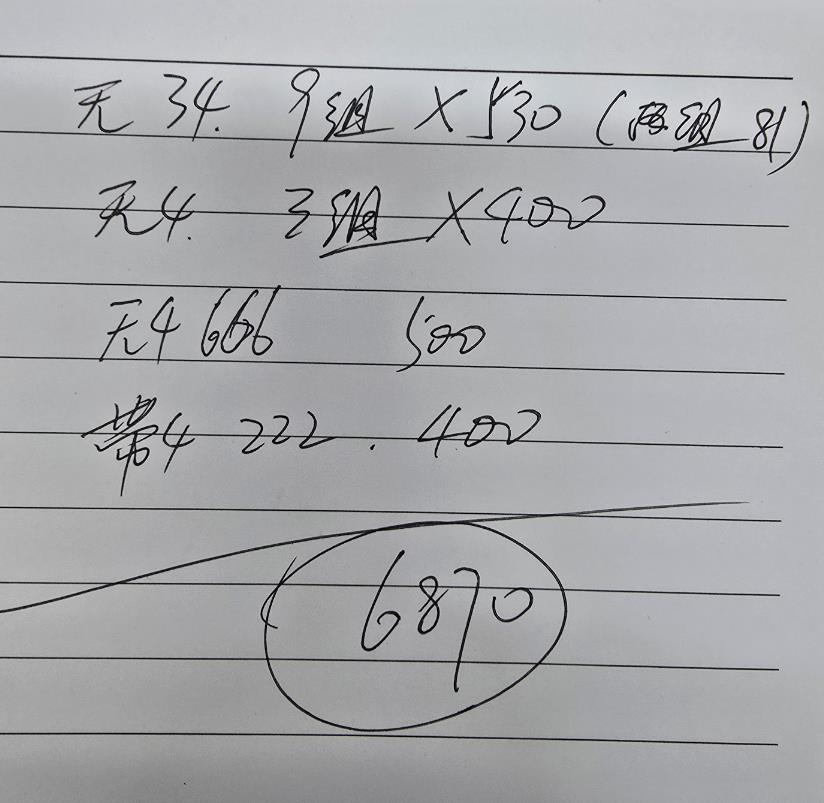 无34. 9组×530(两组81)
无4. 3组×400
无4 666 500
带4 222. 400
6870